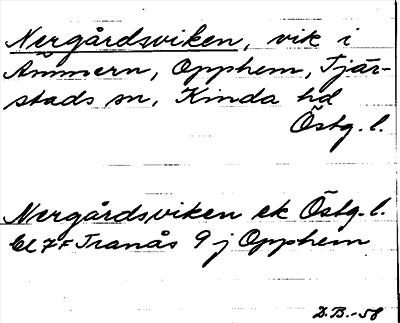 Nergårdsviken, vik i
Ämmern, Opphem, Tjär-
stads sn, Kinda hd
Östg. l.
Nergårdsviken ek Östg. l.
7F Tranås 9 j Opphem
D.B.-58